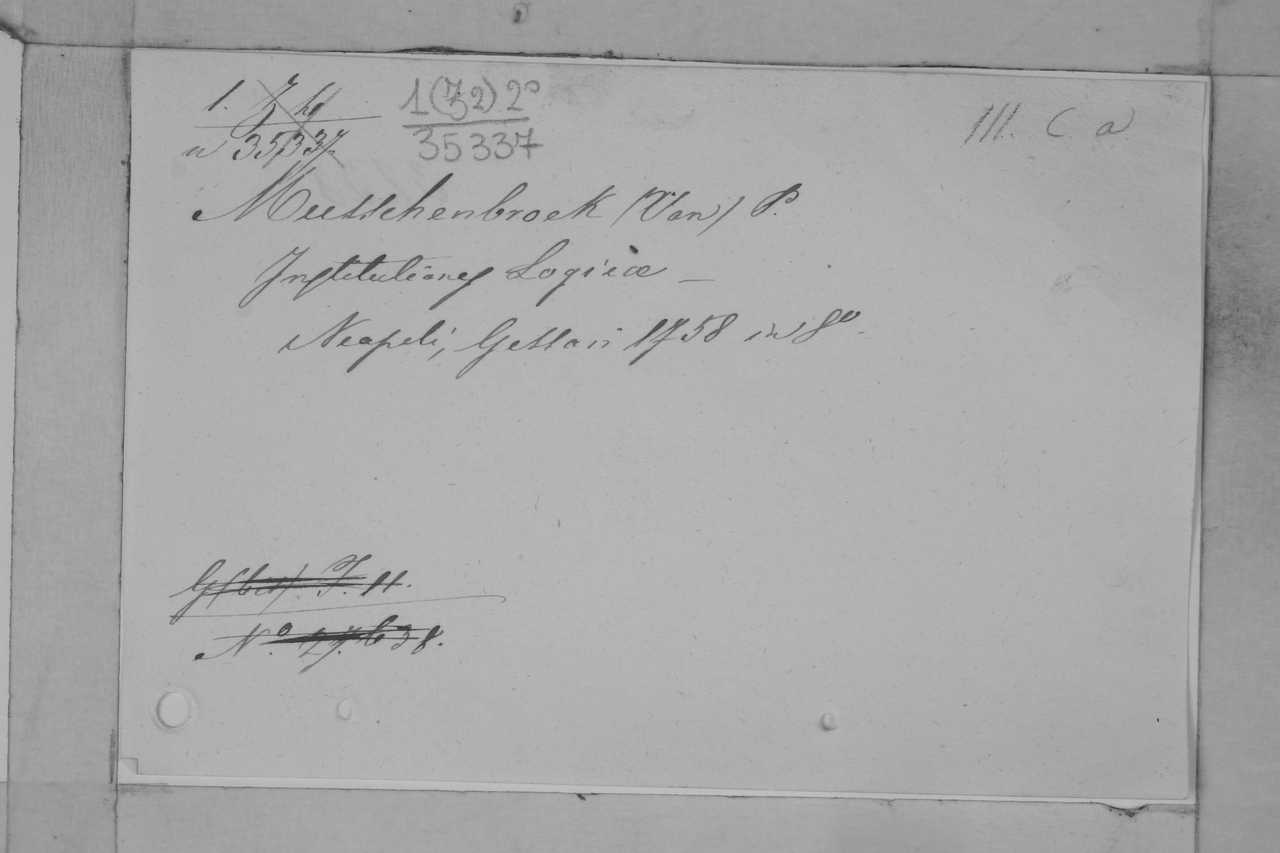 1. 
n 35337
1(72) 2º
35337
III. C a
Musschenbroek (Van) P.
Institutiones Logicæ —
Neapoli, Gessari 1758 in 8º.
Nº. 27.638.